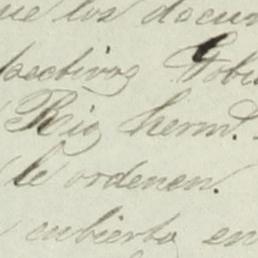 ue los docu
pectivos Gobi
Rio herm.
le ordenen.
cubierto en